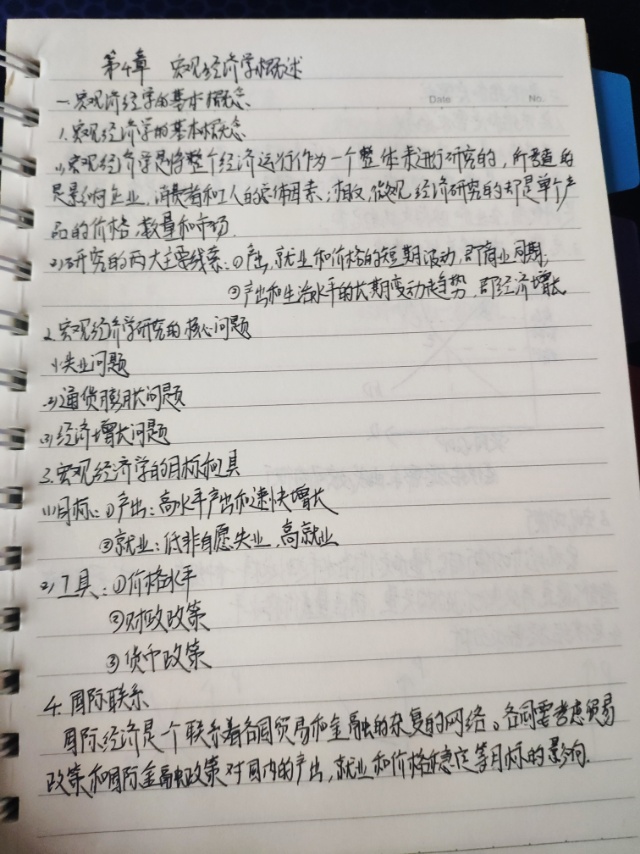 第4章 宏观经济学概述
一.宏观济经学的基本概念
Date No.
1.宏观经济学的基本概念
(1)宏观经济学是将整个经济运行作为一个整体来进行研究的,所考查的
是影响企业、消费者和工人的总体因素;相反,微观经济研究的却是单个产
品的价格、数量和市场.
(2)研究的两大主要线索:①产出,就业和价格的短期波动,即商业周期;
②产出和生活水平的长期变动趋势,即经济增长
2.宏观经济学研究的核心问题
(1)失业问题
(2)通货膨胀问题
(3)经济增长问题
3.宏观经济学的目标和工具
(1)目标:①产出:高水平产出和速快增长
②就业:低非自愿失业,高就业
(2)工具:①价格水平
②财政政策
③货币政策
4.国际联系
国际经济是个联系着各国贸易和金融的杂复的网络。各国要考虑贸易
政策和国际金融政策对国内的产出,就业和价格稳定等目标的影响.